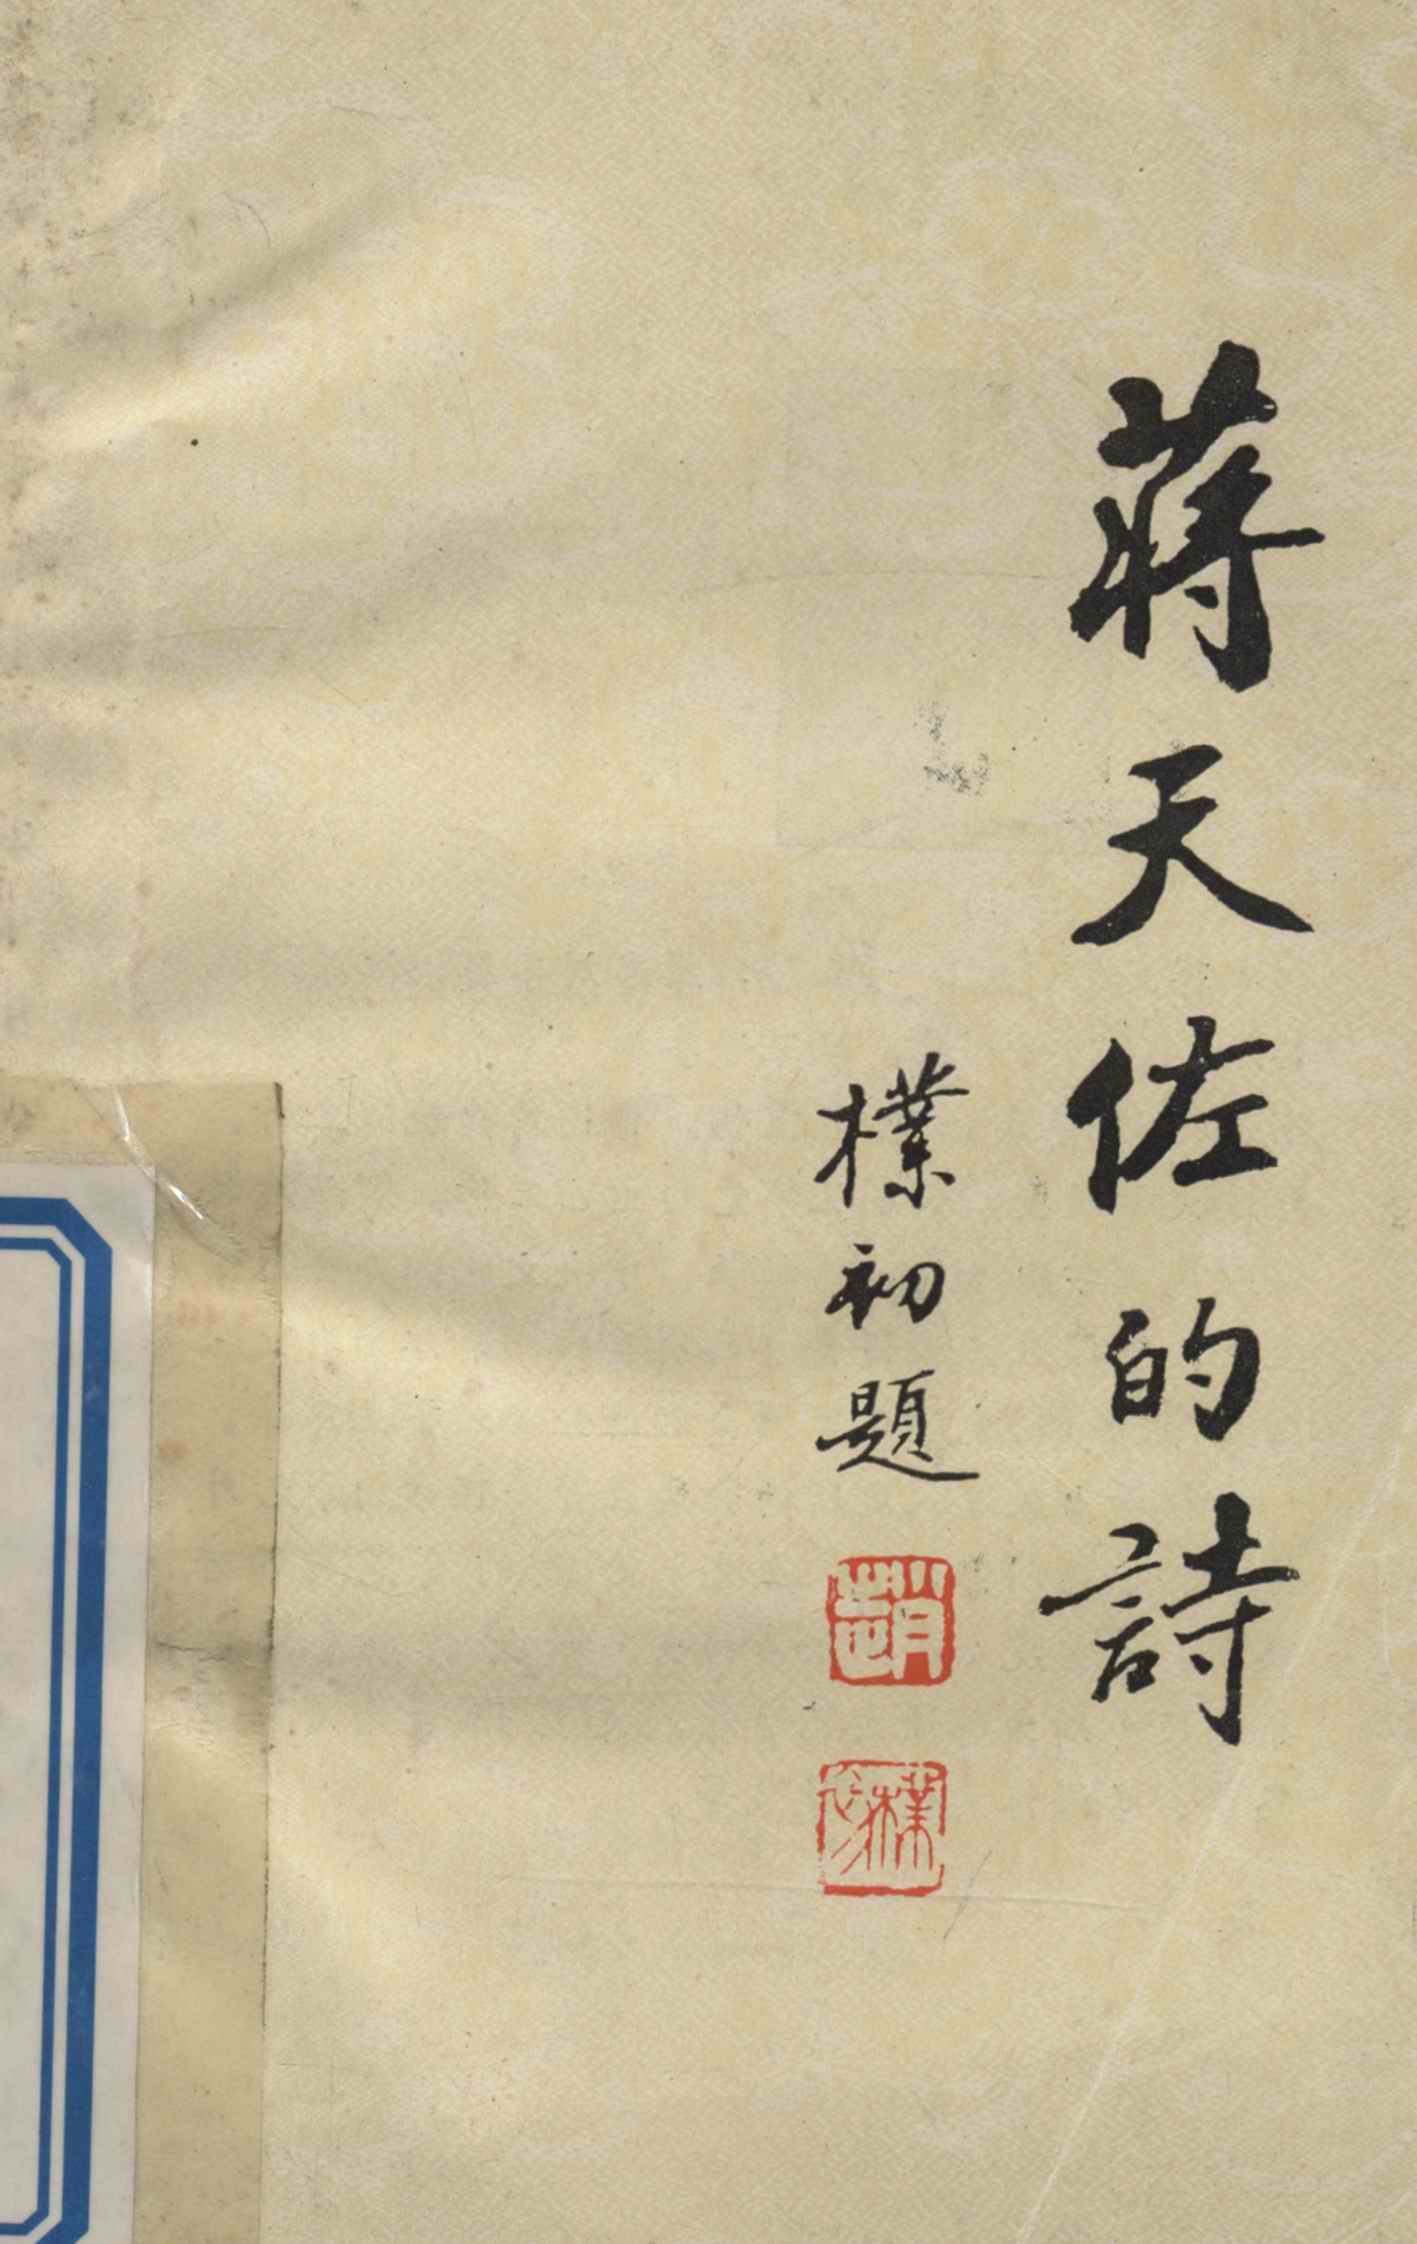 蔣天佐的詩
樸初題
趙
樸初